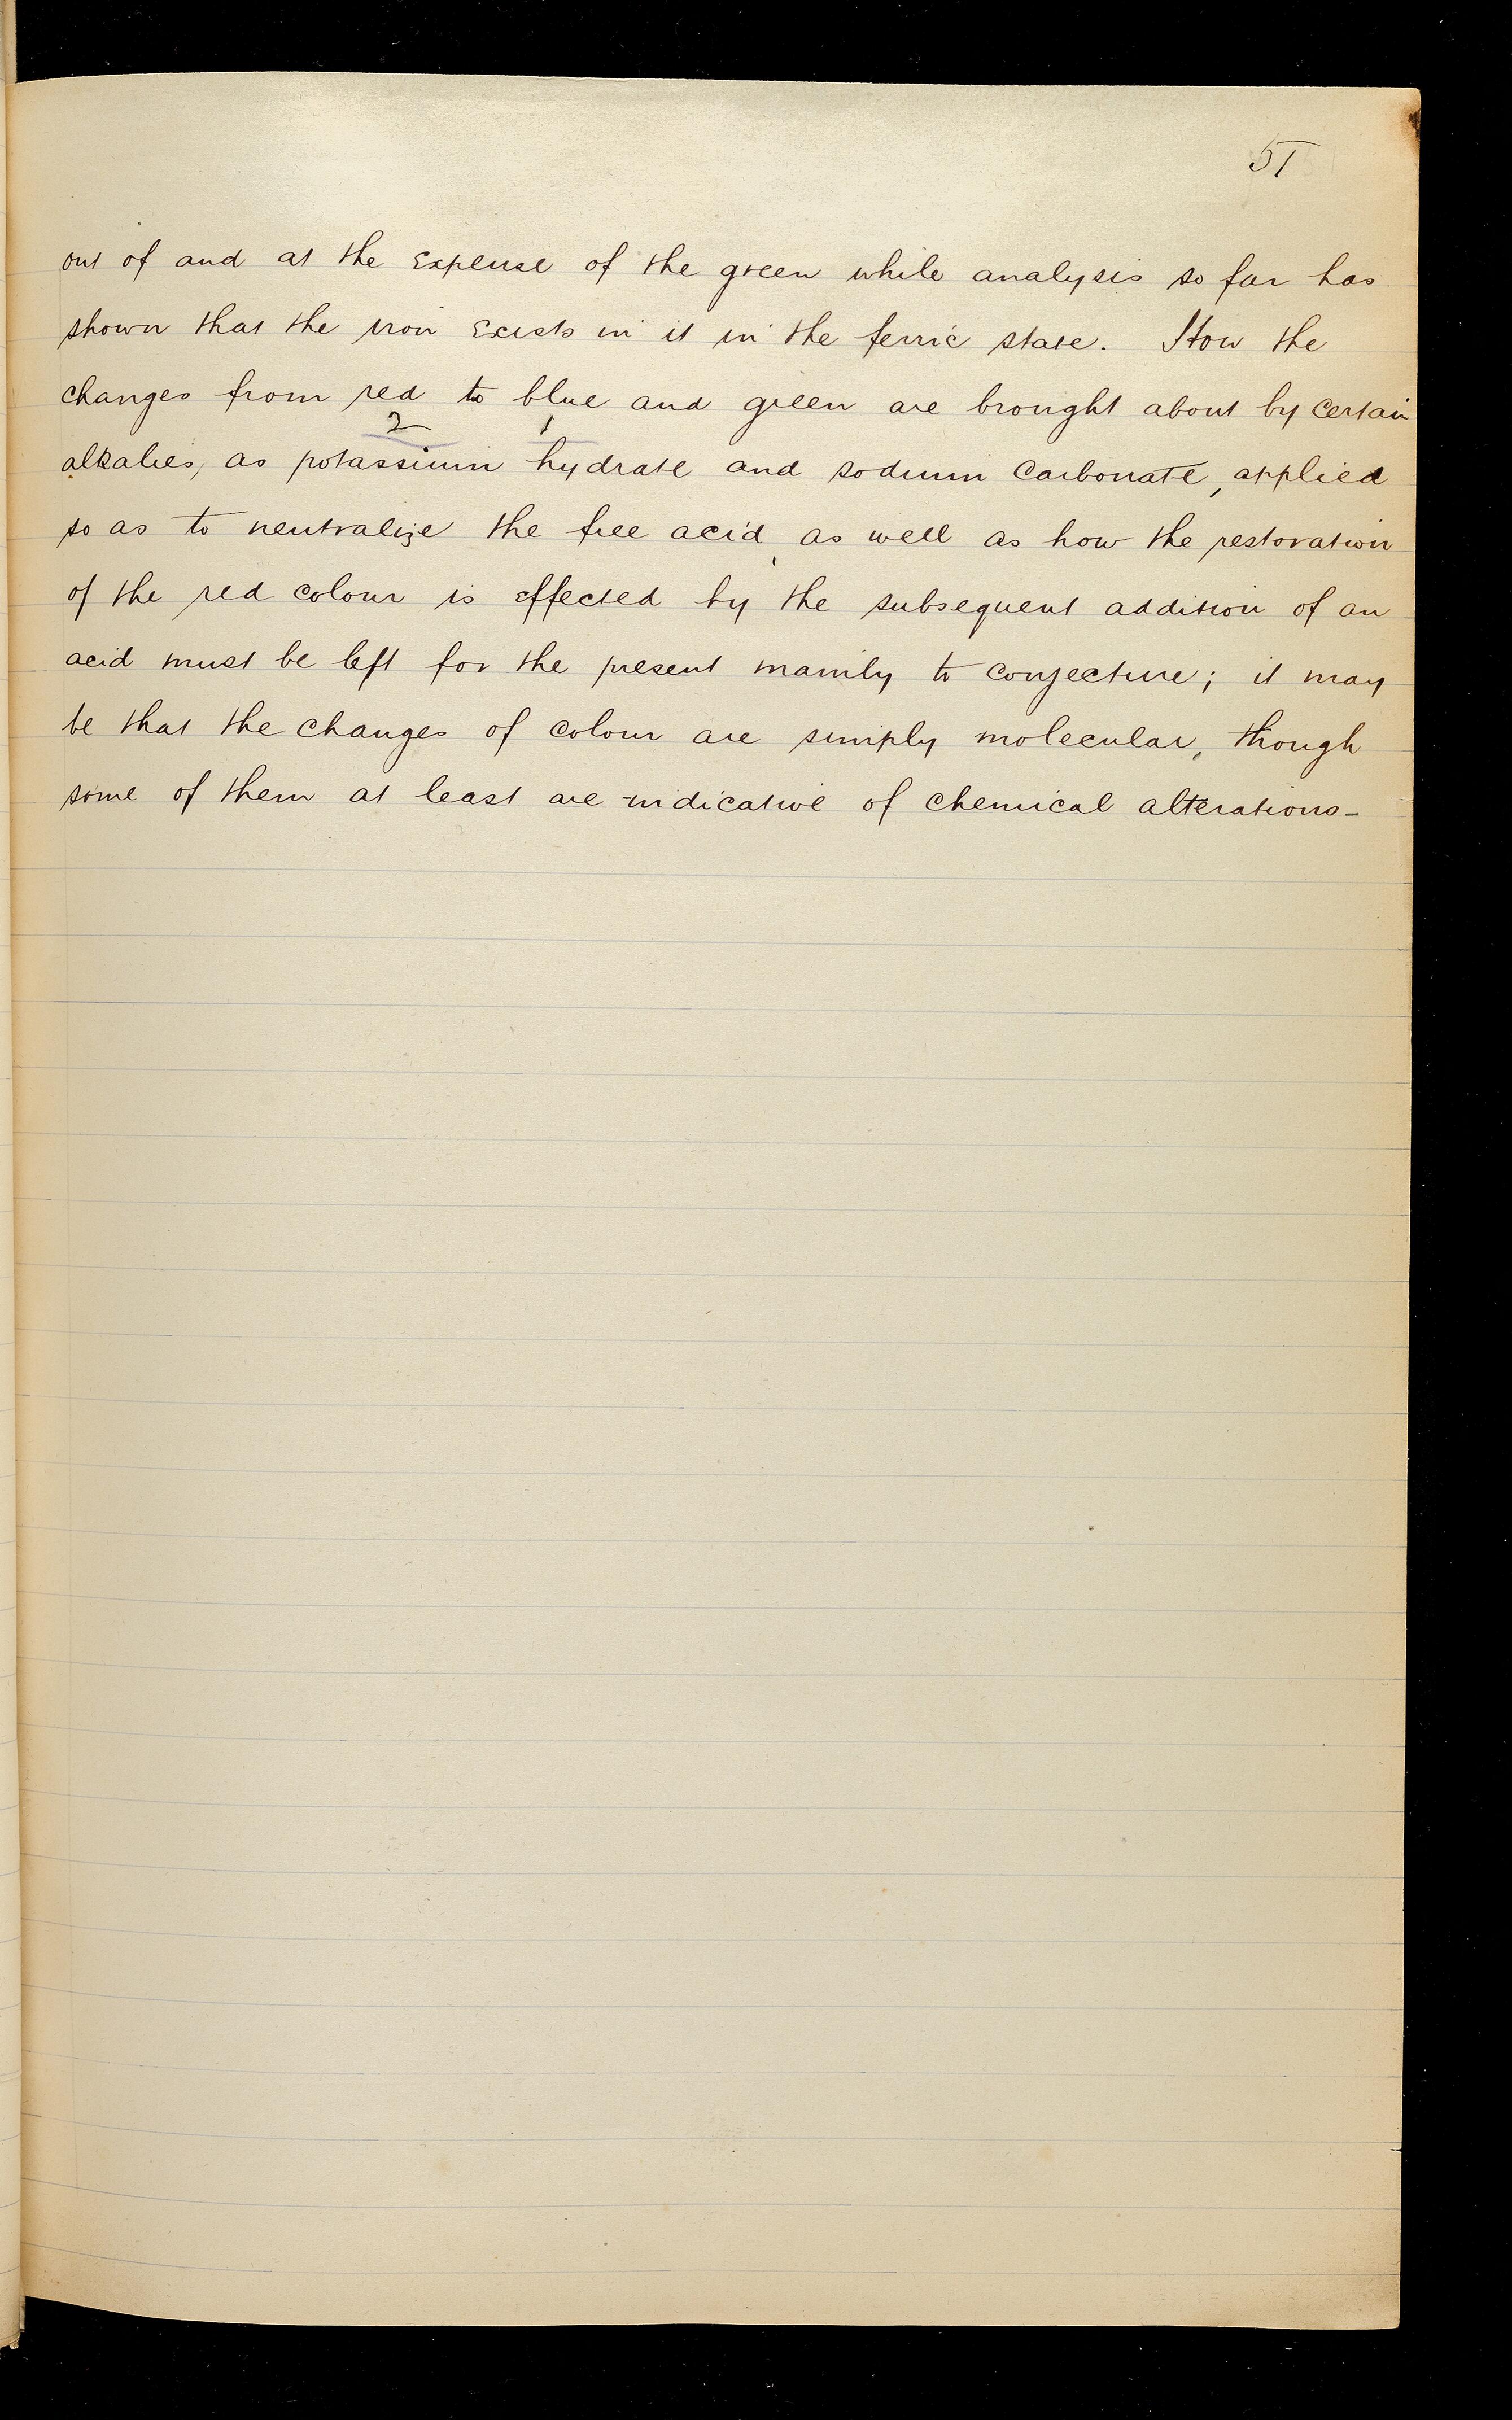 51
out of and at the expense of the green while analysis so far has
shown that the iron exists in it in the ferric state. How the
changes from red to blue and green are brought about by certain
2 1
alkalies, as potassium hydrate and sodium carbonate, applied
so as to neutralize the free acid, as well as how the restoration
of the red colour is effected by the subsequent addition of an
acid must be left for the present mainly to conjecture; it may
be that the changes of colour are simply molecular, though
some of them at least are indicative of chemical alterations-